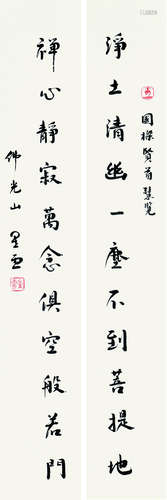 國樑賢首慧覽
淨土清幽一塵不到菩提地
禪心靜寂萬念俱空般若門
佛光山星雲